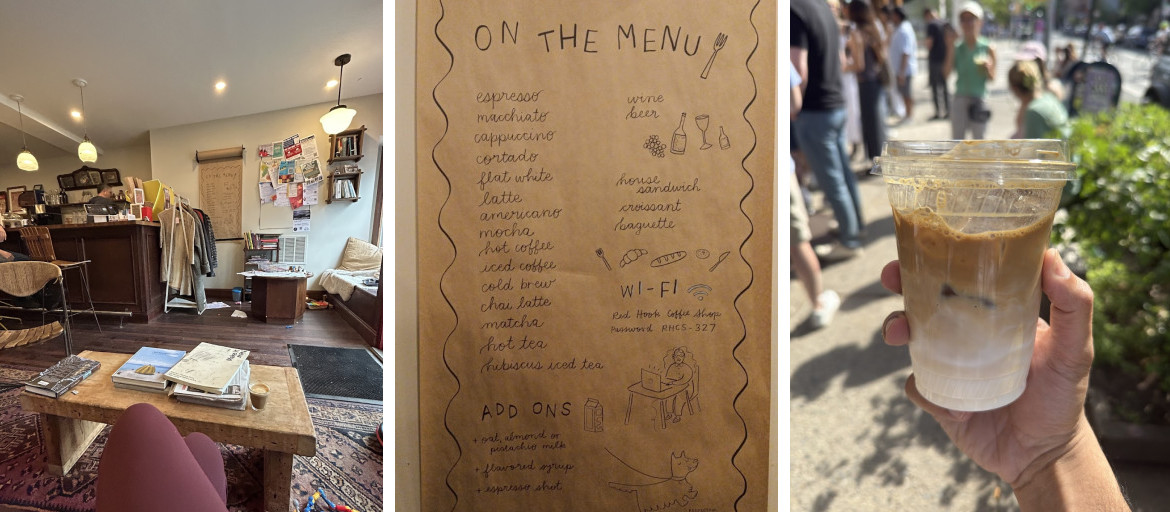 ON THE MENU
espresso
macchiato
cappuccino
cortado
flat white
latte
americano
mocha
hot coffee
iced coffee
cold brew
chai latte
matcha
hot tea
hibiscus iced tea
ADD ONS
+ oat, almond or
pistachio milk
+ flavored syrup
+ espresso shot
wine
beer
house
sandwich
croissant
baguette
WI-FI
Red Hook Coffee Shop
Password RHCS-327